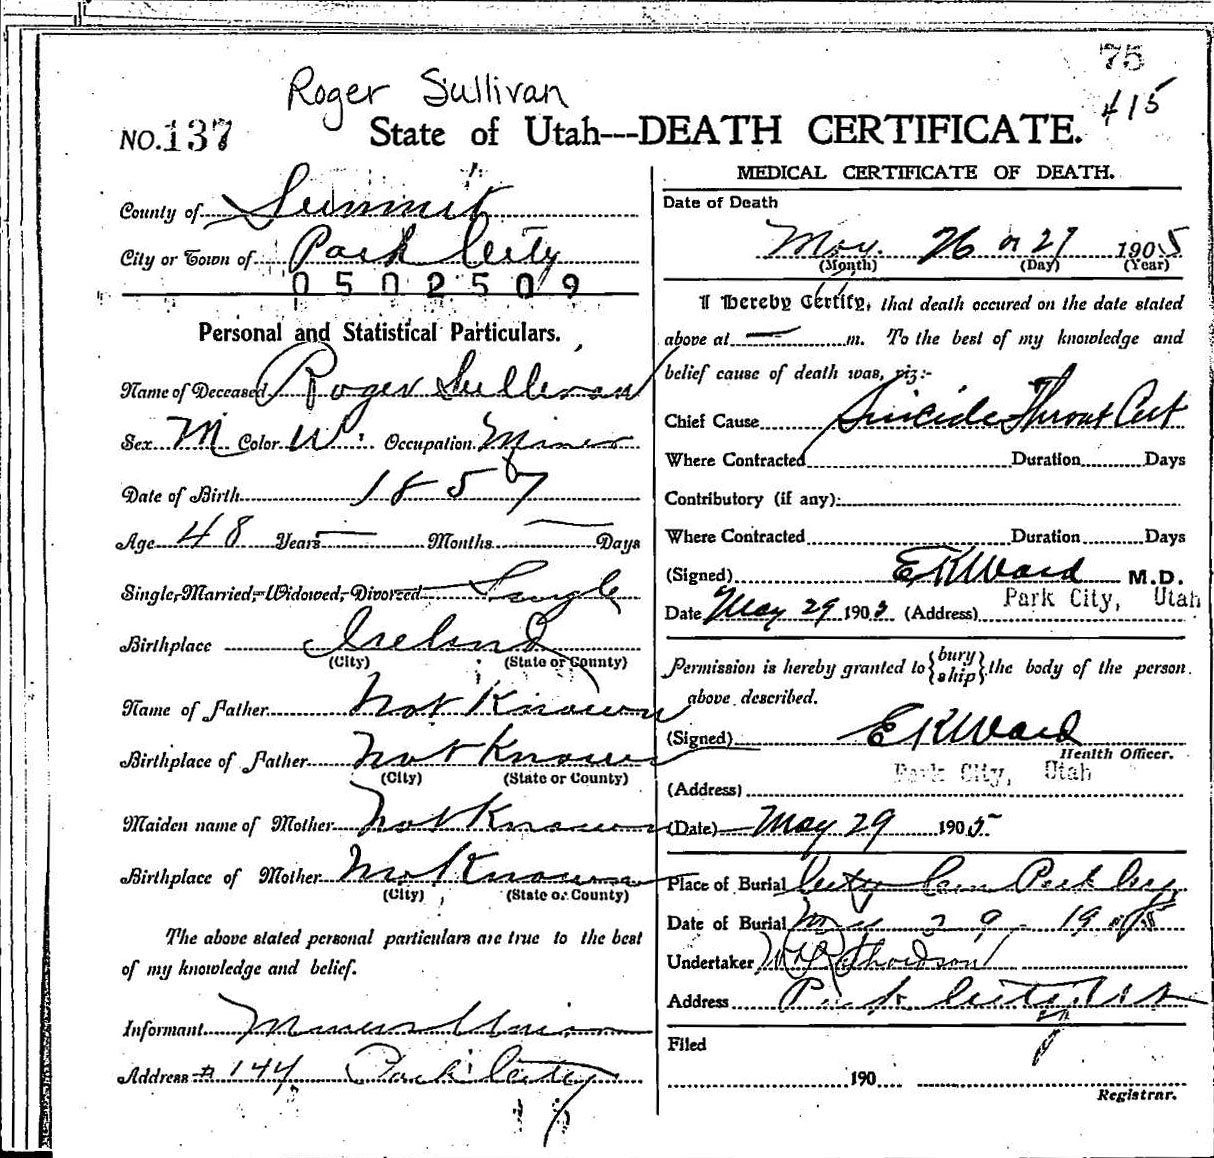 75
415
Roger Sullivan
NO. 137 State of Utah---DEATH CERTIFICATE.
County of Summit
City or Town of Park City
0502509
Personal and Statistical Particulars.
Name of Deceased Roger Sullivan
Sex M Color W Occupation Miner
Date of Birth 1857
Age 48 Years — Months — Days
Single, Married, Widowed, Divorced Single
Birthplace Ireland
(City) (State or County)
Name of Father Not Known
Birthplace of Father Not Known
(City) (State or County)
Maiden name of Mother Not Known
Birthplace of Mother Not Known
(City) (State or County)
The above stated personal particulars are true to the best
of my knowledge and belief.
Informant Miners Union
Address # 144 Park City
MEDICAL CERTIFICATE OF DEATH.
Date of Death
May 26 or 27 1905
(Month) (Day) (Year)
I Hereby Certify, that death occured on the date stated
above at — m. To the best of my knowledge and
belief cause of death was, viz:-
Chief Cause Suicide Throat Cut
Where Contracted Duration Days
Contributory (if any):
Where Contracted Duration Days
(Signed) E K Ward M.D.
Date May 29 1905 (Address) Park City, Utah
Permission is hereby granted to {bury ship} the body of the person
above described.
(Signed) E K Ward
Health Officer.
Park City, Utah
(Address)
(Date) May 29 1905
Place of Burial City Cem Park City
Date of Burial May 29 - 1905
Undertaker Richardson
Address Park City Utah
Filed
190
Registrar.